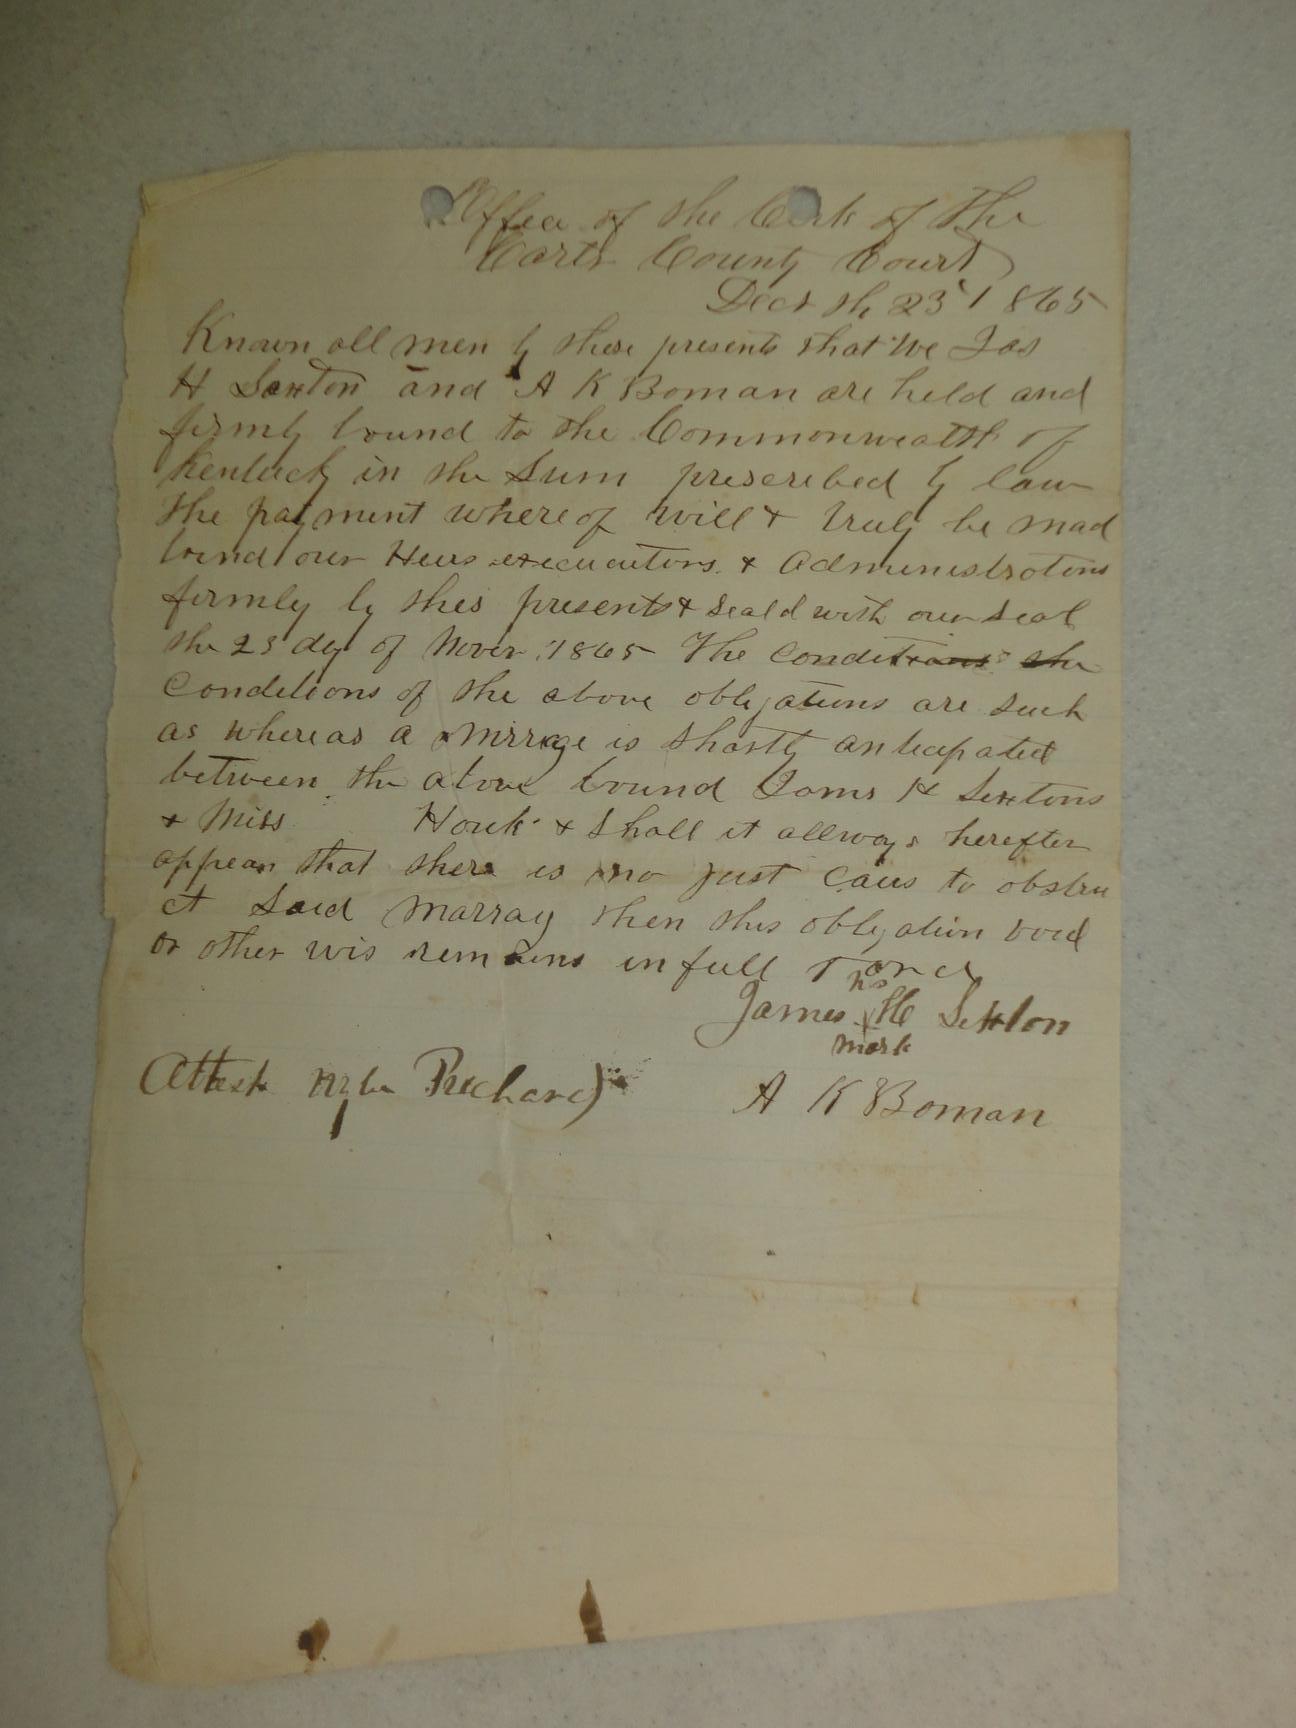 Office of the Clerk of the
Carter County Court
Dect th 23 1865
Known all men by these presents that We Jas
H Sexton and A K Boman are held and
firmly bound to the Commonwealth of
Kentucky in the Sum prescribed by law
the payment where of will & truly be mad
bind our Heirs executors & administrators
firmly by this presents & seald with our seal
the 23 day of Nover 1865 The conditions the
conditions of the above obligations are such
as whereas a Mirrage is shortly anticapated
between the above bound Jams H Sextons
& Miss Houk & shall it allways herefter
appear that there is no just caus to obstru
ct said marray then this obligation void
or other wis remains in full force
his
James H Sexton
mark
Attest Prichard
A K Boman